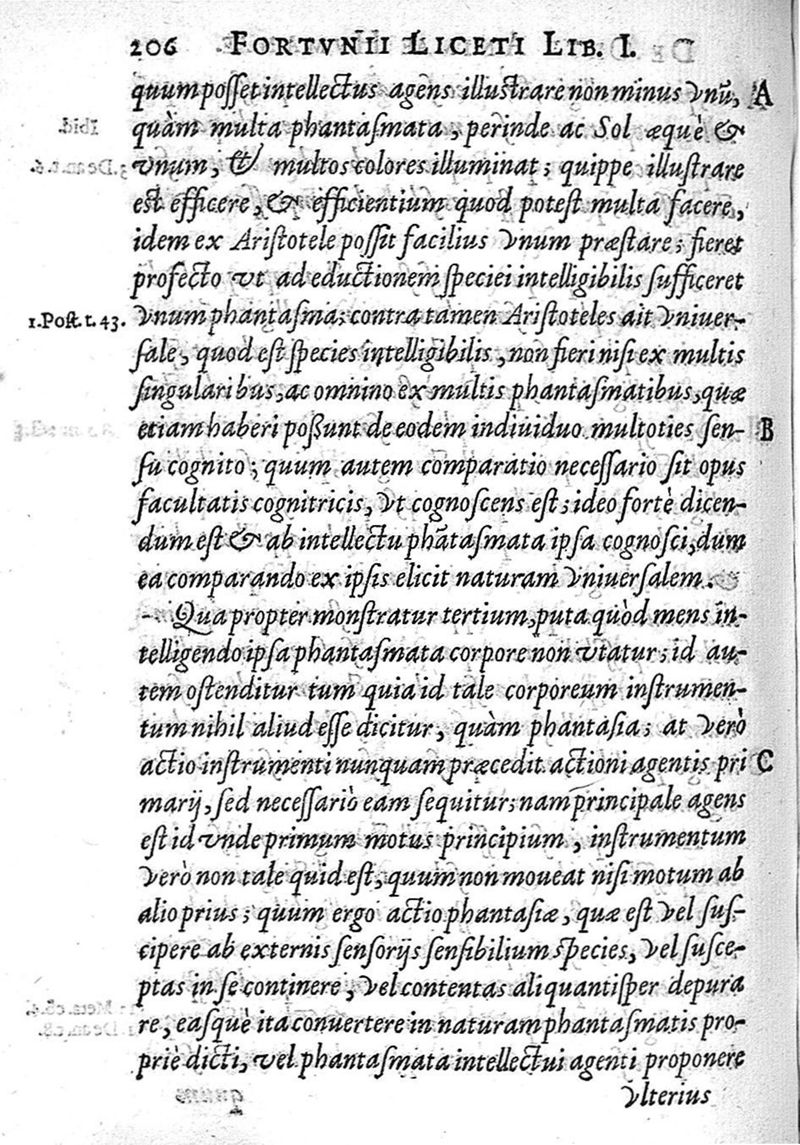 206 FORTVNII LICETI LIB. I.
quum posset intellectus agens illustrare non minus vnũ, A
quàm multa phantasmata, perinde ac Sol æquè &
vnum, & multos colores illuminat; quippe illustrare
est efficere, & efficientium quod potest multa facere,
idem ex Aristotele possit facilius vnum præstare; fieret
profecto vt ad eductionem speciei intelligibilis sufficeret
1.Post. t. 43. vnum phantasma; contra tamen Aristoteles ait vniuer-
sale, quod est species intelligibilis, non fieri nisi ex multis
singularibus, ac omnino ex multis phantasmatibus, quæ
etiam haberi possunt de eodem indiuiduo multoties sen- B
su cognito; quum autem comparatio necessario sit opus
facultatis cognitricis, vt cognoscens est; ideo fortè dicen-
dum est & ab intellectu phãtasmata ipsa cognosci, dum
ea comparando ex ipsis elicit naturam vniuersalem.
Quapropter monstratur tertium, puta quòd mens in-
telligendo ipsa phantasmata corpore non vtatur; id au-
tem ostenditur tum quia id tale corporeum instrumen-
tum nihil aliud esse dicitur, quàm phantasia; at verò
actio instrumenti nunquam præcedit actioni agentis pri C
marij, sed necessariò eam sequitur; nam principale agens
est id vnde primum motus principium, instrumentum
verò non tale quid est, quum non moueat nisi motum ab
alio prius; quum ergo actio phantasiæ, quæ est vel sus-
cipere ab externis sensorijs sensibilium species, vel susce-
ptas in se continere, vel contentas aliquantisper depura
re, easquè ita conuertere in naturam phantasmatis pro-
priè dicti, vel phantasmata intellectui agenti proponere
vlterius